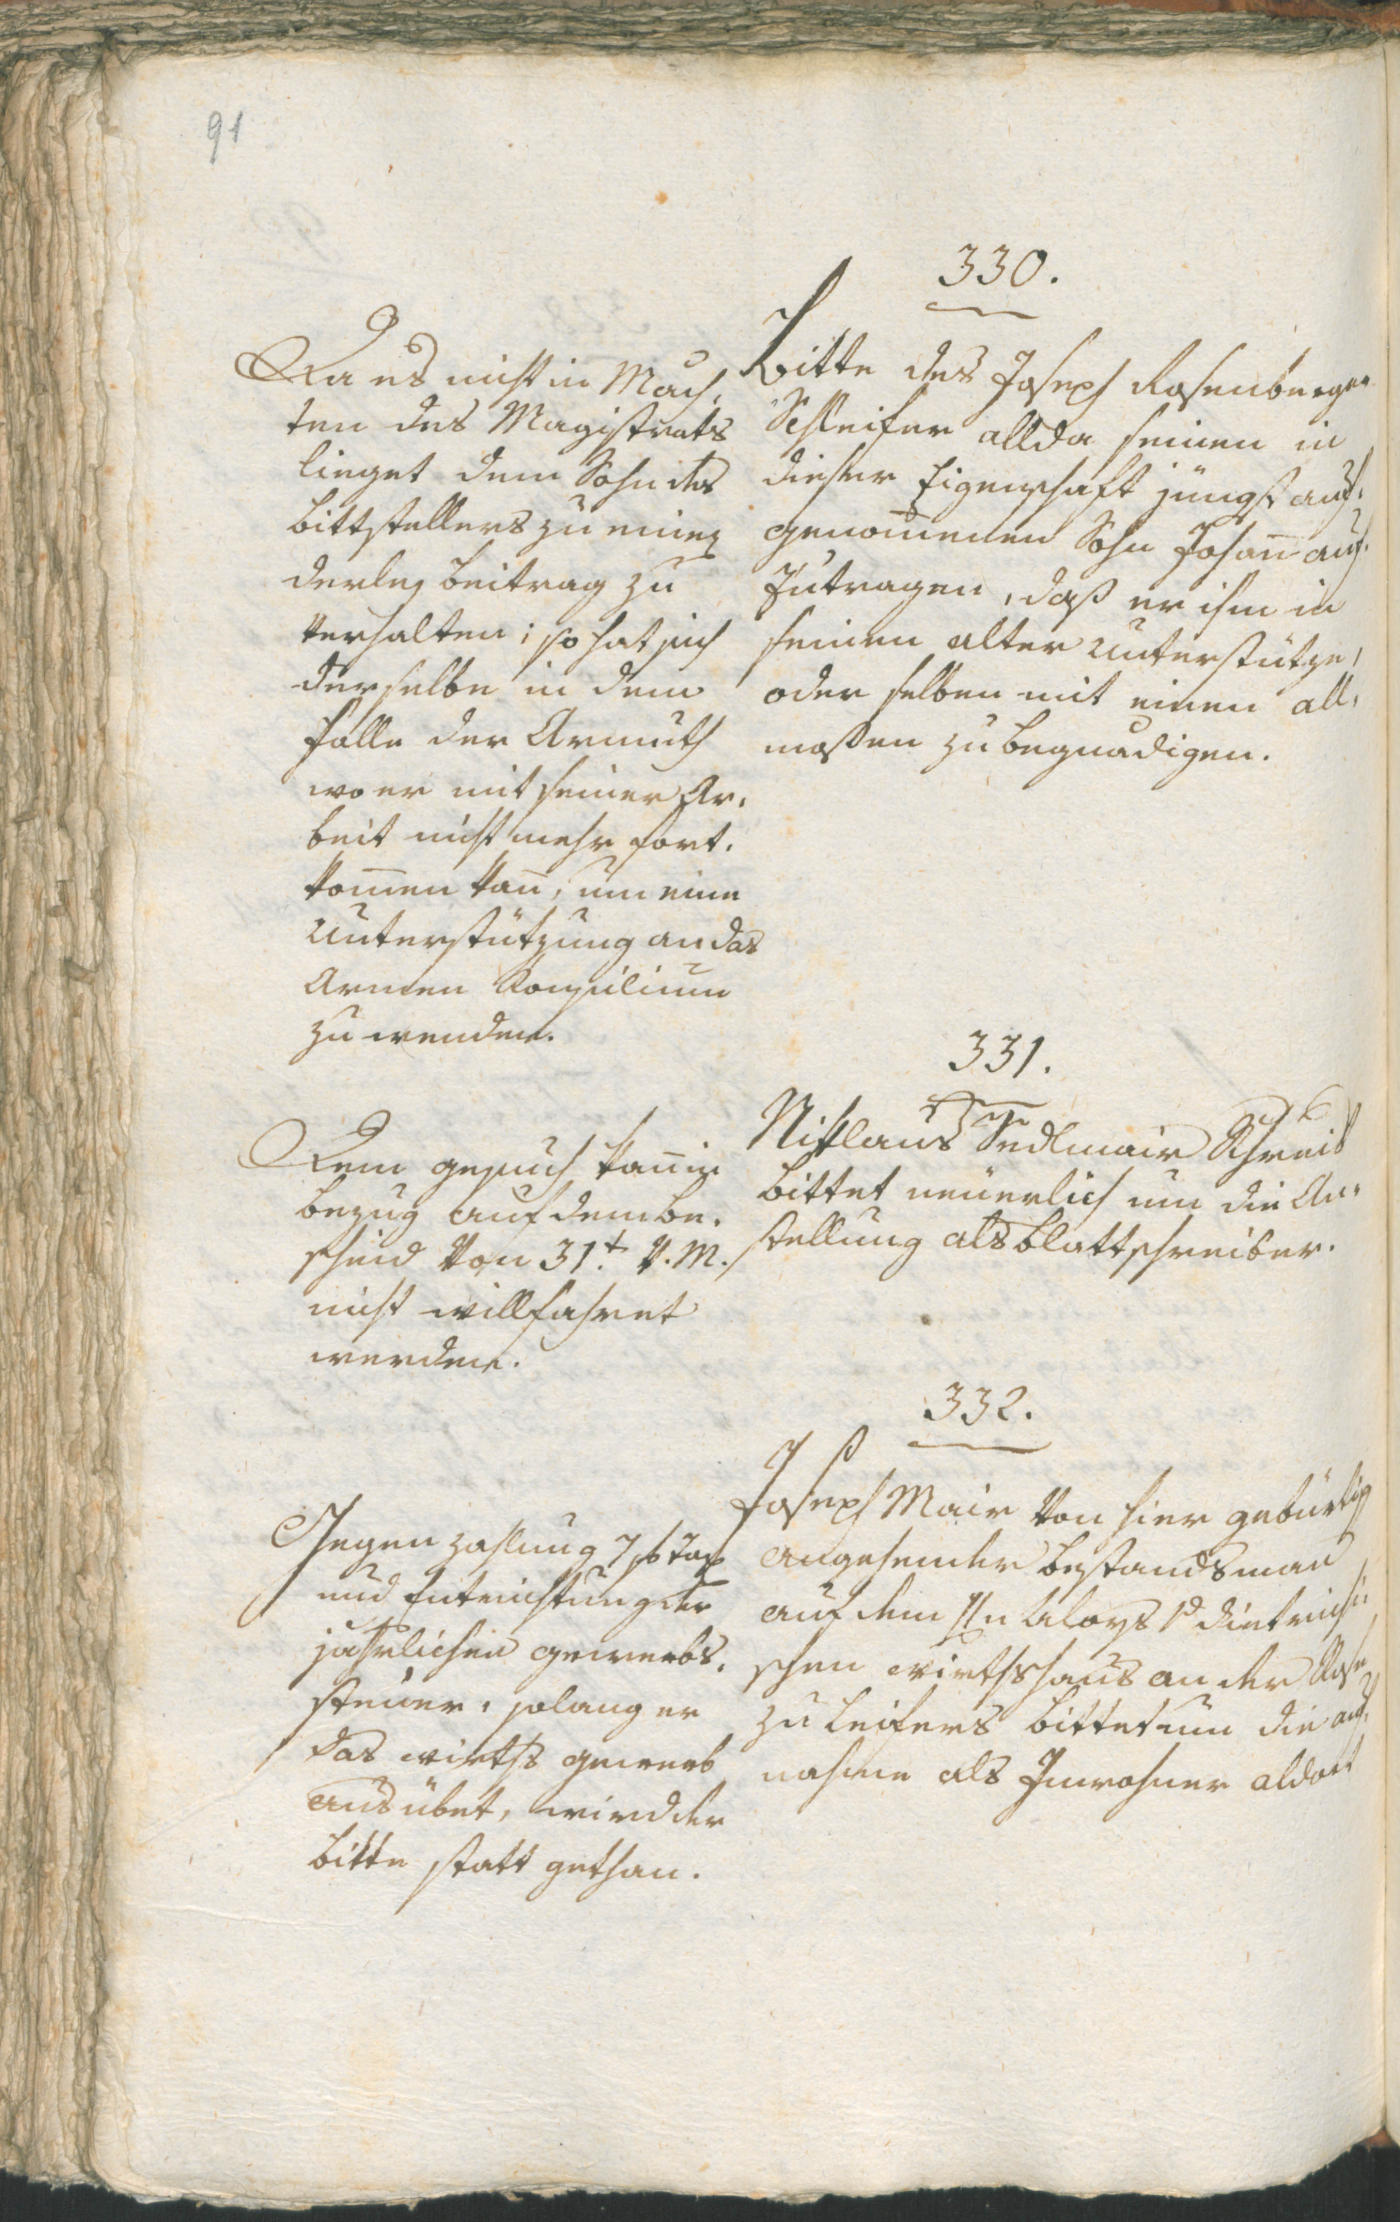 91
330.
Bitte des Joseph Rosenberger
Schleifer allda seinen in
dieser Eigenschaft jüngst auf-
genom̅enen Sohn Johan̅ auf-
zutragen, daß er ihm in
seinen alter unterstütze,
oder selben mit einen all-
moßen zu begnadigen.
Da es nicht in Mäch-
ten des Magistrats
lieget dem Sohn des
bittstellers zu einig
derley beitrag zu
verhalten; so hat sich
derselbe in dem
falle der Armuth
wo er mit seiner Ar-
beit nicht mehr fort-
kom̅en kan̅, um eine
Unterstützung an das
Armen Konsilium
zu wenden.
331.
Niklaus Sedlmair Schreib
bittet neüerlich um die An-
stellung als blattschreiber.
Dem gesuch kan̅ in
bezug auf dem be-
scheid von 31.t v. M.
nicht willfahret
werden.
332.
Joseph Mair von hier gebürtig
angehender bestandsman
auf dem Hn Aloys v dietrich-
schen wirthshaus an der Rose
zu Leifers bittet um die auf-
nahme als Inwohner aldort
Gegen zahlung 7 f tax
und Entrichtung der
jährlichen gewerbs-
steüer, solang er
das wirths gewerb
ausübet, wird der
bitte statt gethan.